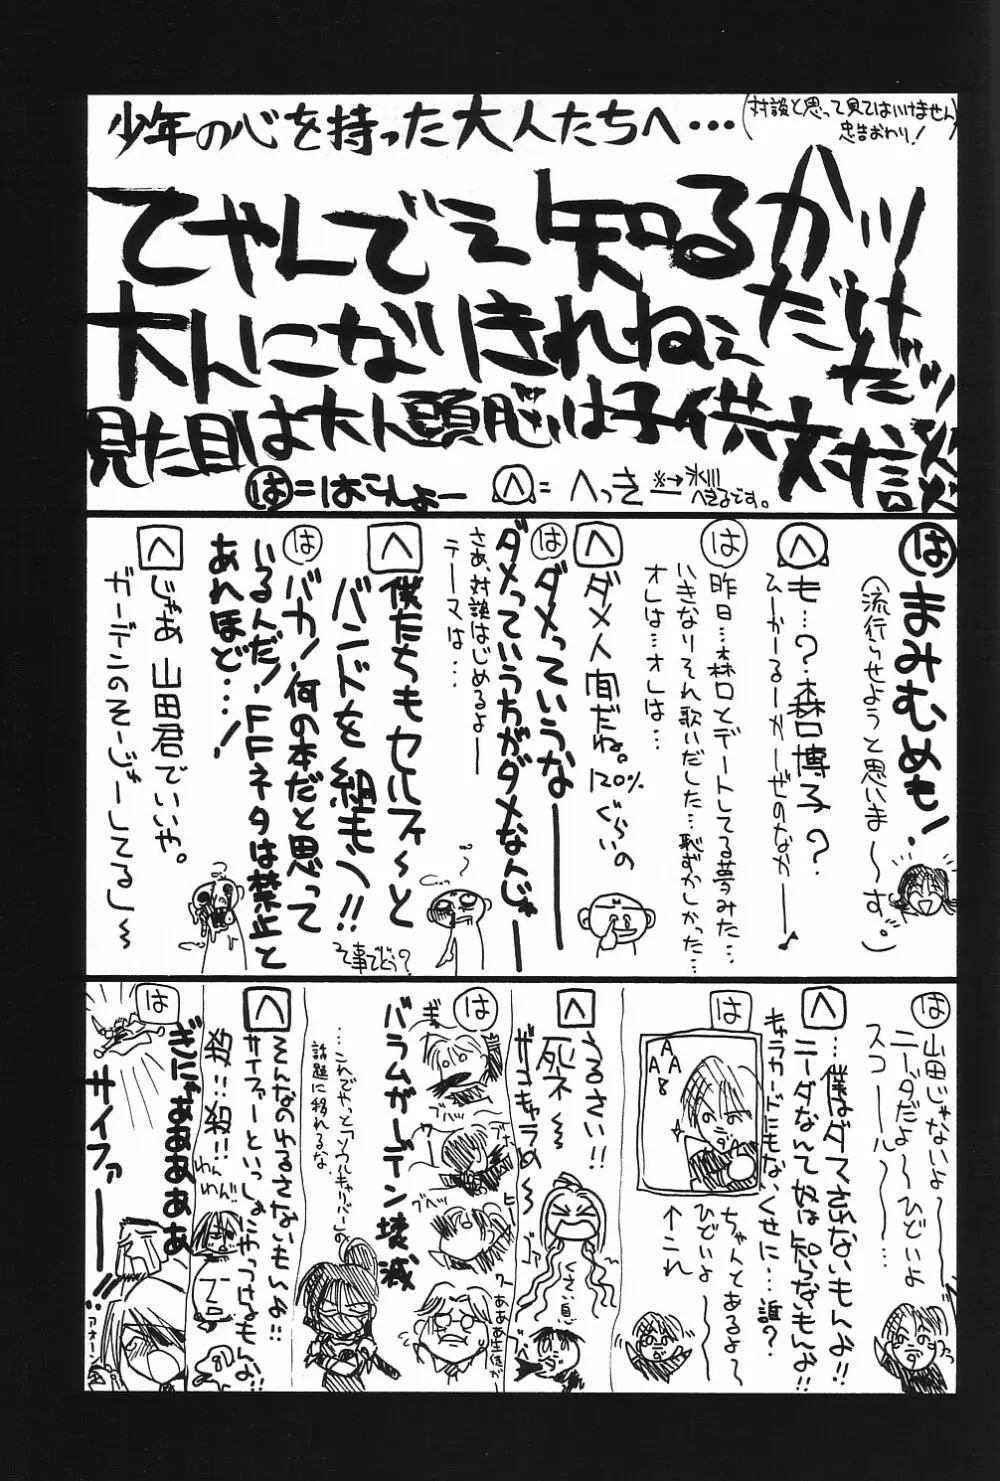 少年の心を持った大人たちへ・・・
(対談と思って見てはいけません)
忠告おわり!
てやんでぇ知るかッ
大人になりきれねぇだけだッ
見た目は大人頭脳は子供対談
は=はこんよー
へ=へっき
※→氷川へきるです。
は まみむめも!
(流行らせようと思いま〜す。)
へ も…?森口博子?
むーかーるーかーぜのなかー♪
は 昨日…森口とデートしてる夢みた…
いきなりそれ歌いだした…恥ずかしかった…
オレは…オレは…
へ ダメ人間だね。120%ぐらいの
は ダメっていうなーー
ダメっていうちがダメなんじゃーー
さあ、対談はじめるよー
テーマは…
へ 僕たちもセルフィ〜と
バンドを組もう!!
そ事でどう?
は バカ!何の本だと思って
いるんだ!FFネタは禁止と
あれほど…!
へ じゃあ山田君でいいや。
ガーデンのそーじゃーしてるし〜
は 山田じゃないよ〜
ニーダだよ〜ひどいよ
スコール〜…
へ …僕はダマされないもんよ!!
ニーダなんて奴は知らなもんよ!!
キャラカードにもないくせに…誰?
は ちゃんとあるよ〜
ひどいよ〜
↑コレ
A
A A
8
へ うるさい!!
死ネ〜
ザコキャラめ〜
くさい息
は バラムガーデン壊滅
ブハッ
アホ
ブヘッ
うーあああ生徒が
…これでやっとソウルキャリバーの
話題に移れるな
へ そんなのゆるさないもんよ!!
サイファーといっしょにやっつけるもんよ!!
わんわん!!
は ぎにゃあああああ
サイファーー!!
アオーン